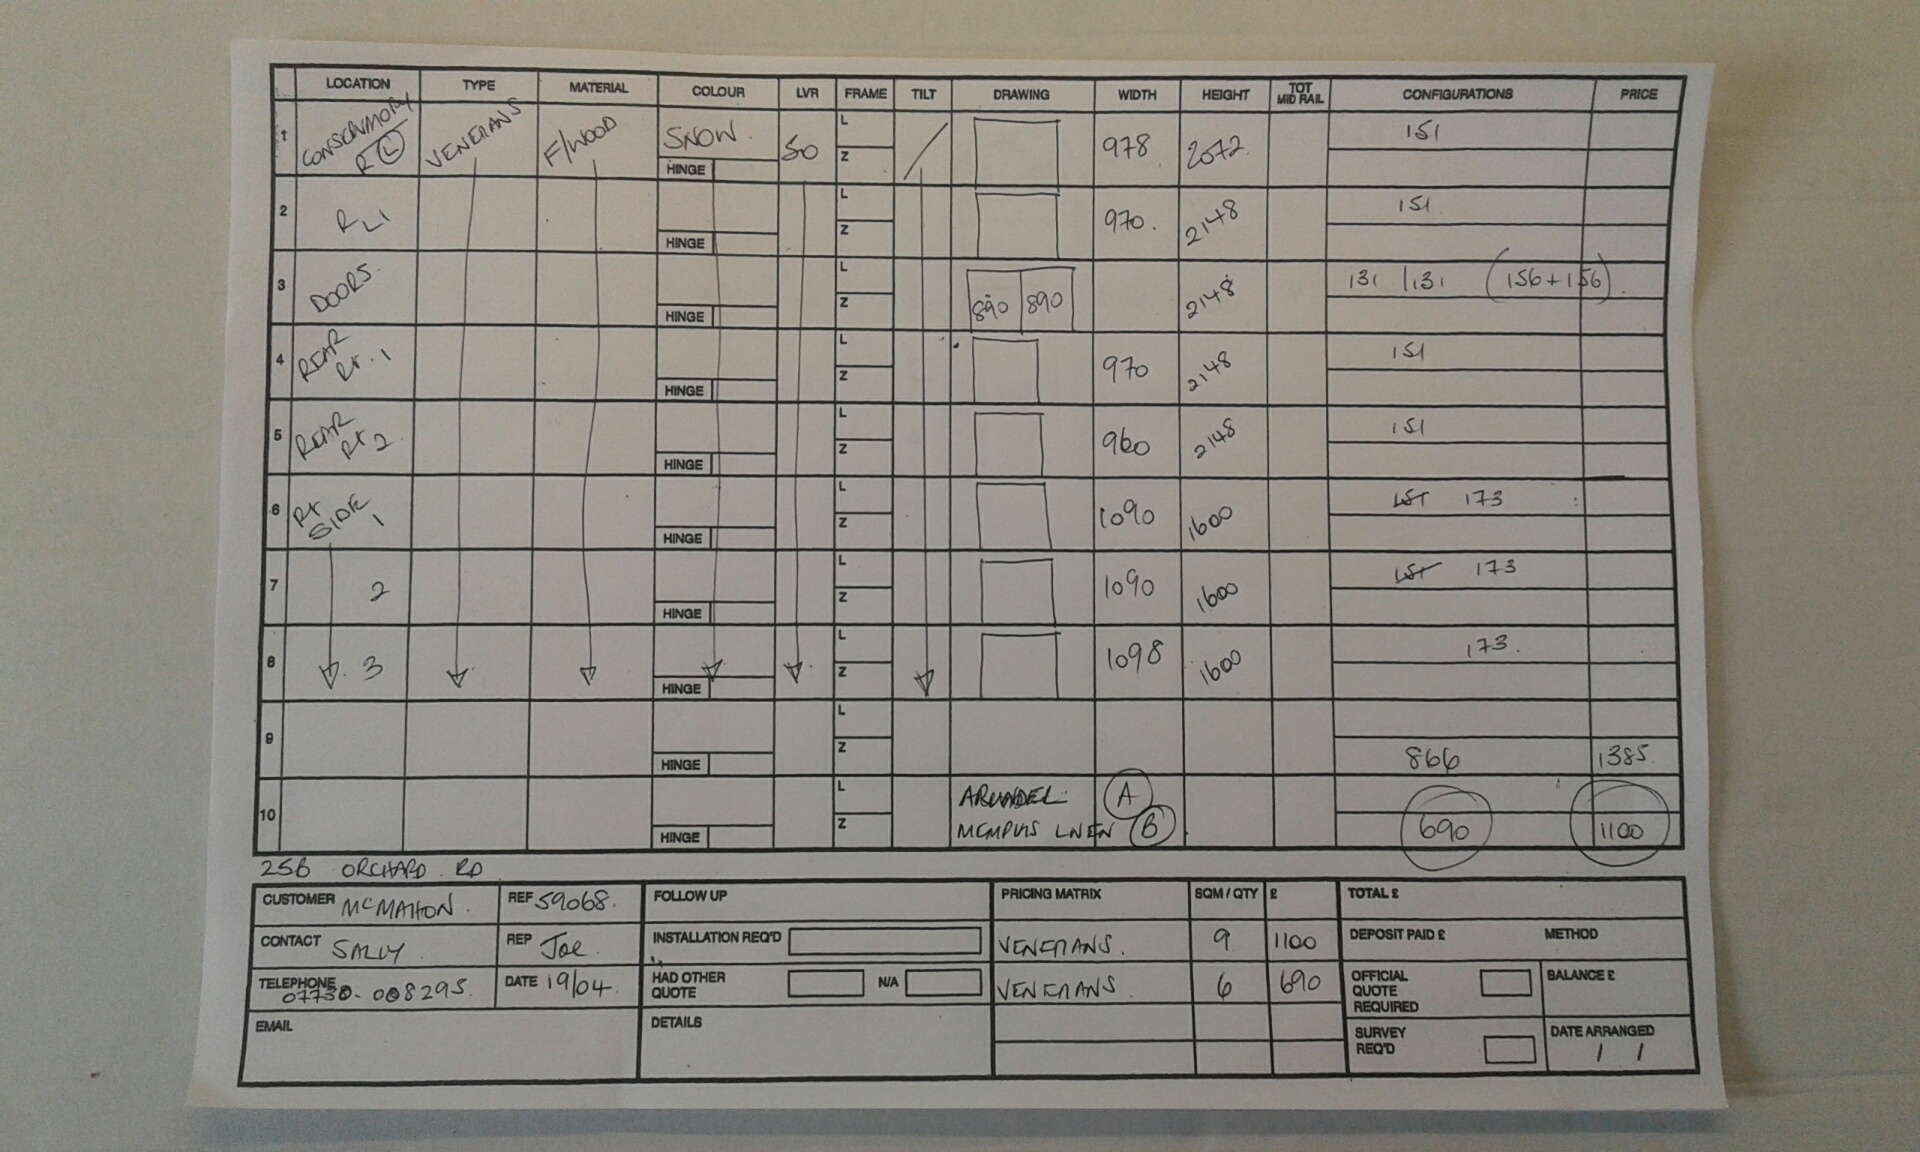 LOCATION TYPE MATERIAL COLOUR LVR FRAME TILT DRAWING WIDTH HEIGHT TOT MID RAIL CONFIGURATIONS PRICE
1 CONSERVATORY R L VENETIANS F/WOOD SNOW. HINGE 50 L Z 978 2072 151
2 R L1 HINGE L Z 970. 2148 151
3 DOORS. HINGE L Z 890 890 2148 131 /131 (156+156)
4 REAR Rt. 1 HINGE L Z 970 2148 151
5 REAR Rt 2 HINGE L Z 960 2148 151
6 Rt SIDE 1 HINGE L Z 1090 1600 151 173
7 2 HINGE L Z 1090 1600 151 173
8 3 HINGE L Z 1098 1600 173.
9 HINGE L Z 866 1385
10 HINGE L Z ARUNDEL A
MEMPHIS LINEN B 690 1100
25B ORCHARD RD
CUSTOMER MCMAHON. REF 59068.
CONTACT SALLY REP Joe.
TELEPHONE 07730-008295. DATE 19/04.
EMAIL
FOLLOW UP
INSTALLATION REQ'D
HAD OTHER QUOTE N/A
DETAILS
PRICING MATRIX SQM / QTY £
VENETIANS. 9 1100
VENETIANS. 6 690
TOTAL £
DEPOSIT PAID £ METHOD
OFFICIAL QUOTE REQUIRED BALANCE £
SURVEY REQ'D DATE ARRANGED
/ /